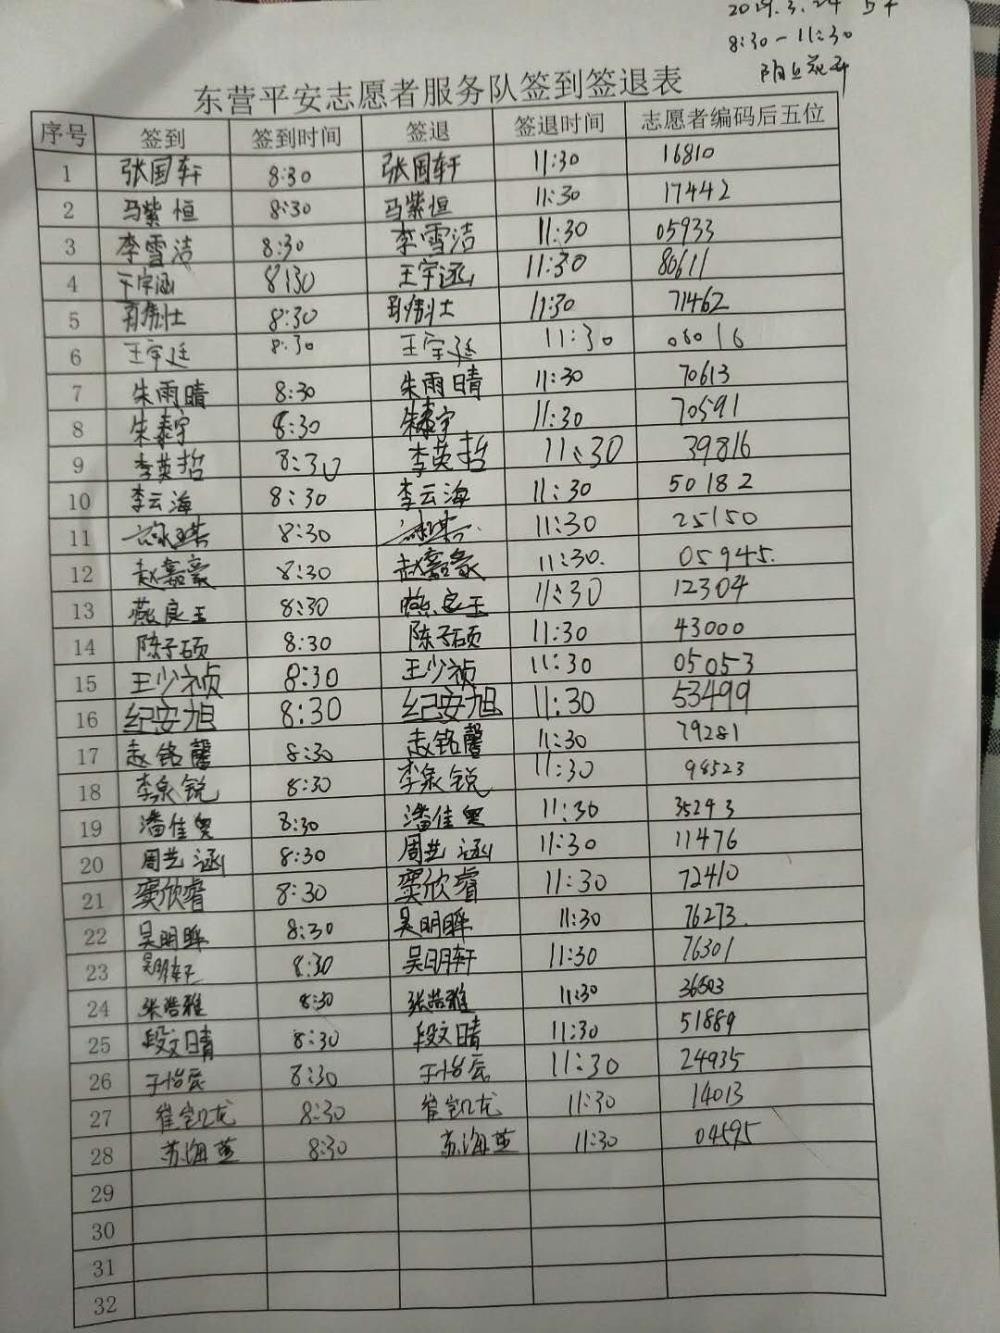 2019.3.24
8:30-11:30
东营平安志愿者服务队签到签退表
序号 签到 签到时间 签退 签退时间 志愿者编码后五位
1 张国轩 8:30 张国轩 11:30 16810
2 马紫恒 8:30 马紫恒 11:30 17442
3 李雪洁 8:30 李雪洁 11:30 05933
4 王宇涵 8:30 王宇涵 11:30 80611
5 8:30 11:30 71462
6 王宇廷 8:30 王宇廷 11:30 06016
7 朱雨晴 8:30 朱雨晴 11:30 70613
8 朱泰宇 8:30 朱泰宇 11:30 70591
9 李英哲 8:30 李英哲 11:30 39816
10 李云海 8:30 李云海 11:30 50182
11 8:30 11:30 25150
12 赵嘉豪 8:30 赵嘉豪 11:30. 05945.
13 燕良玉 8:30 燕良玉 11:30 12304
14 陈子硕 8:30 陈子硕 11:30 43000
15 王少祯 8:30 王少祯 11:30 05053
16 纪安旭 8:30 纪安旭 11:30 53499
17 赵铭馨 8:30 赵铭馨 11:30 79281
18 李泉锐 8:30 李泉锐 11:30 98523
19 潘佳奥 8:30 潘佳奥 11:30 35243
20 周艺涵 8:30 周艺涵 11:30 11476
21 窦欣睿 8:30 窦欣睿 11:30 72410
22 吴明晔 8:30 吴明晔 11:30 76273.
23 吴明轩 8:30 吴明轩 11:30 76301
24 张浩雅 8:30 张浩雅 11:30 36503
25 段文晴 8:30 段文晴 11:30 51889
26 于怡辰 8:30 于怡辰 11:30 24935
27 崔凯龙 8:30 崔凯龙 11:30 14013
28 苏海蓝 8:30 苏海蓝 11:30 04595
29
30
31
32